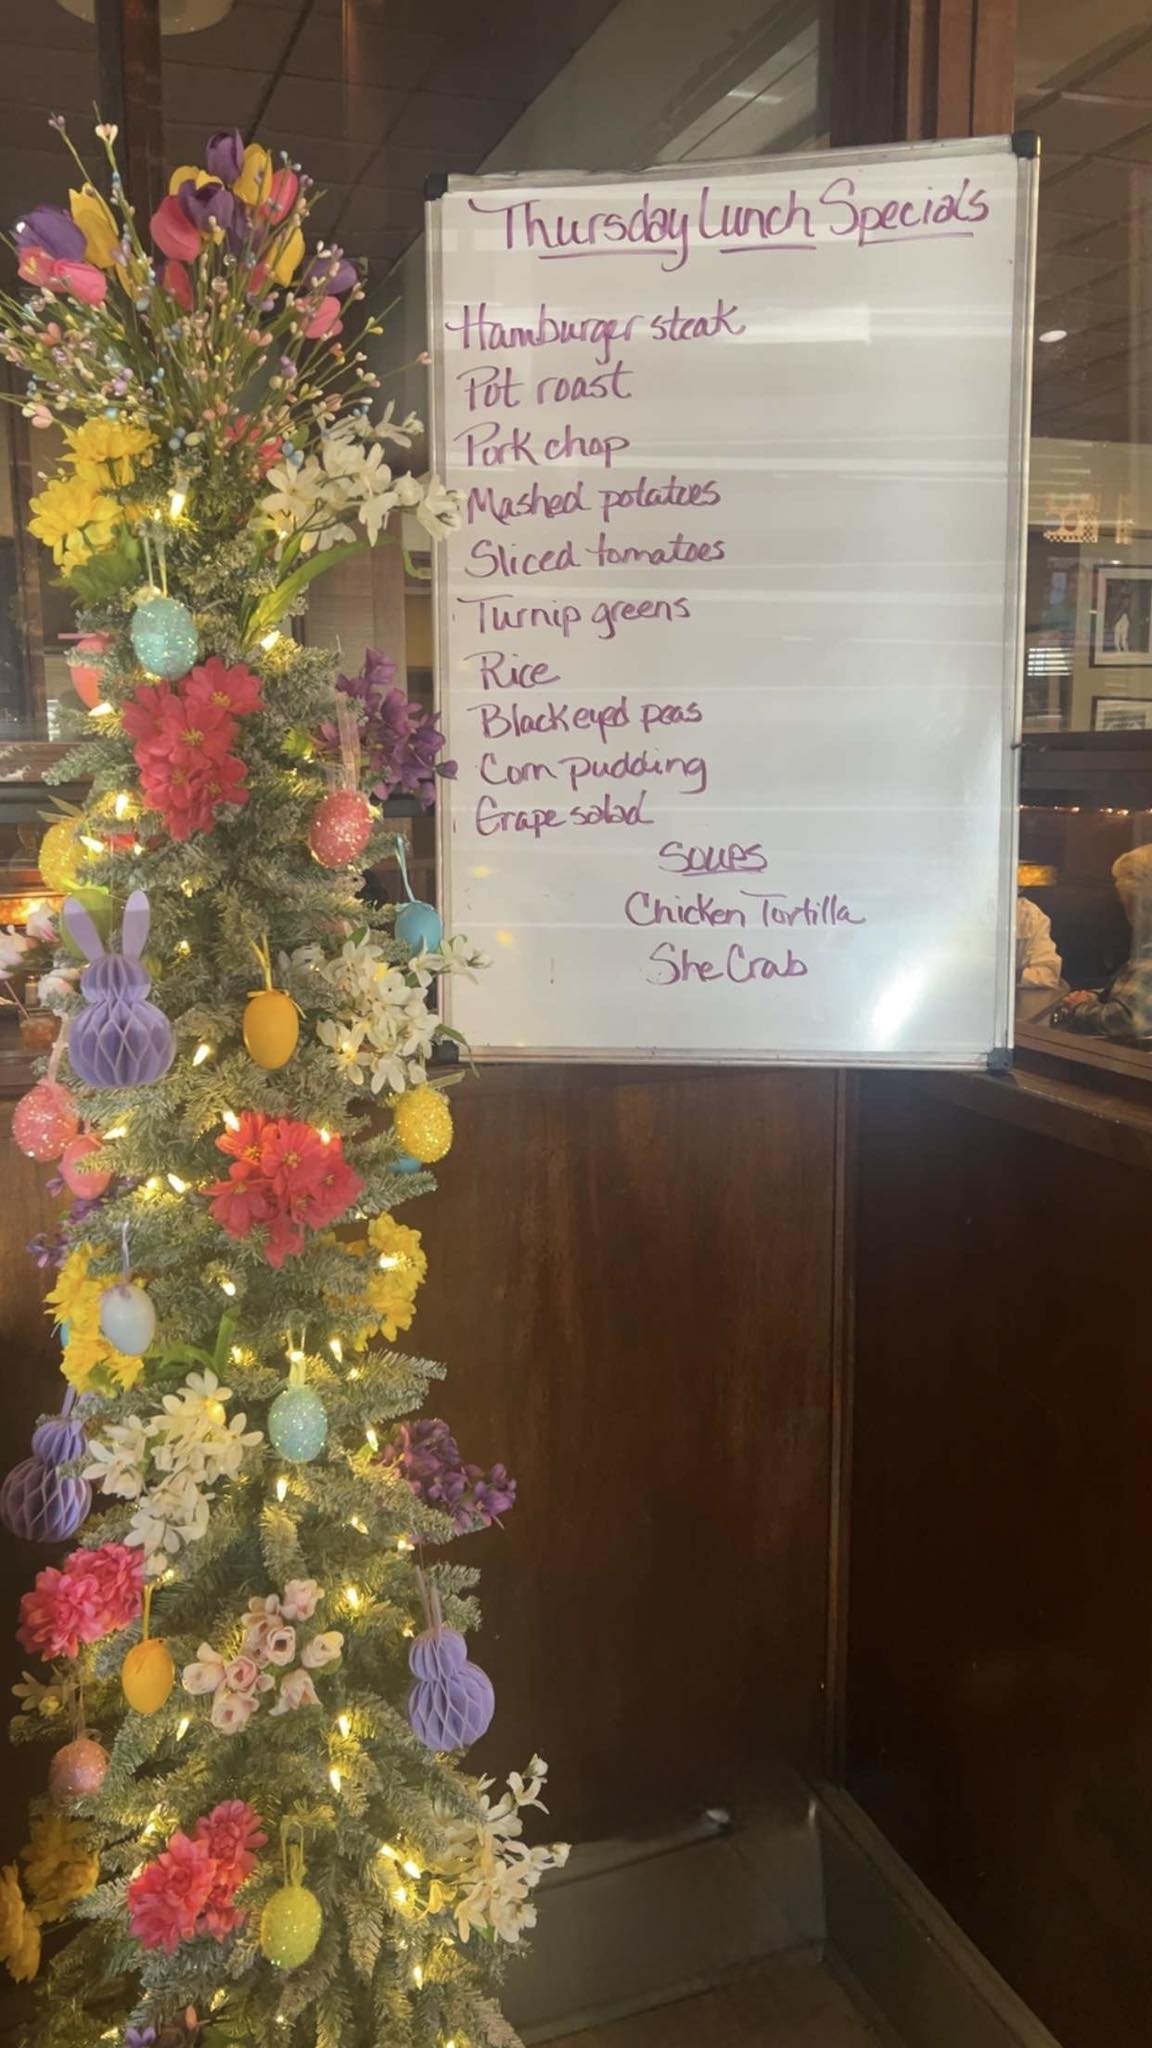 Thursday Lunch Specials
Hamburger steak
Pot roast
Pork chop
Mashed potatoes
Sliced tomatoes
Turnip greens
Rice
Blackeyed peas
Corn pudding
Grape salad
Soups
Chicken Tortilla
She Crab